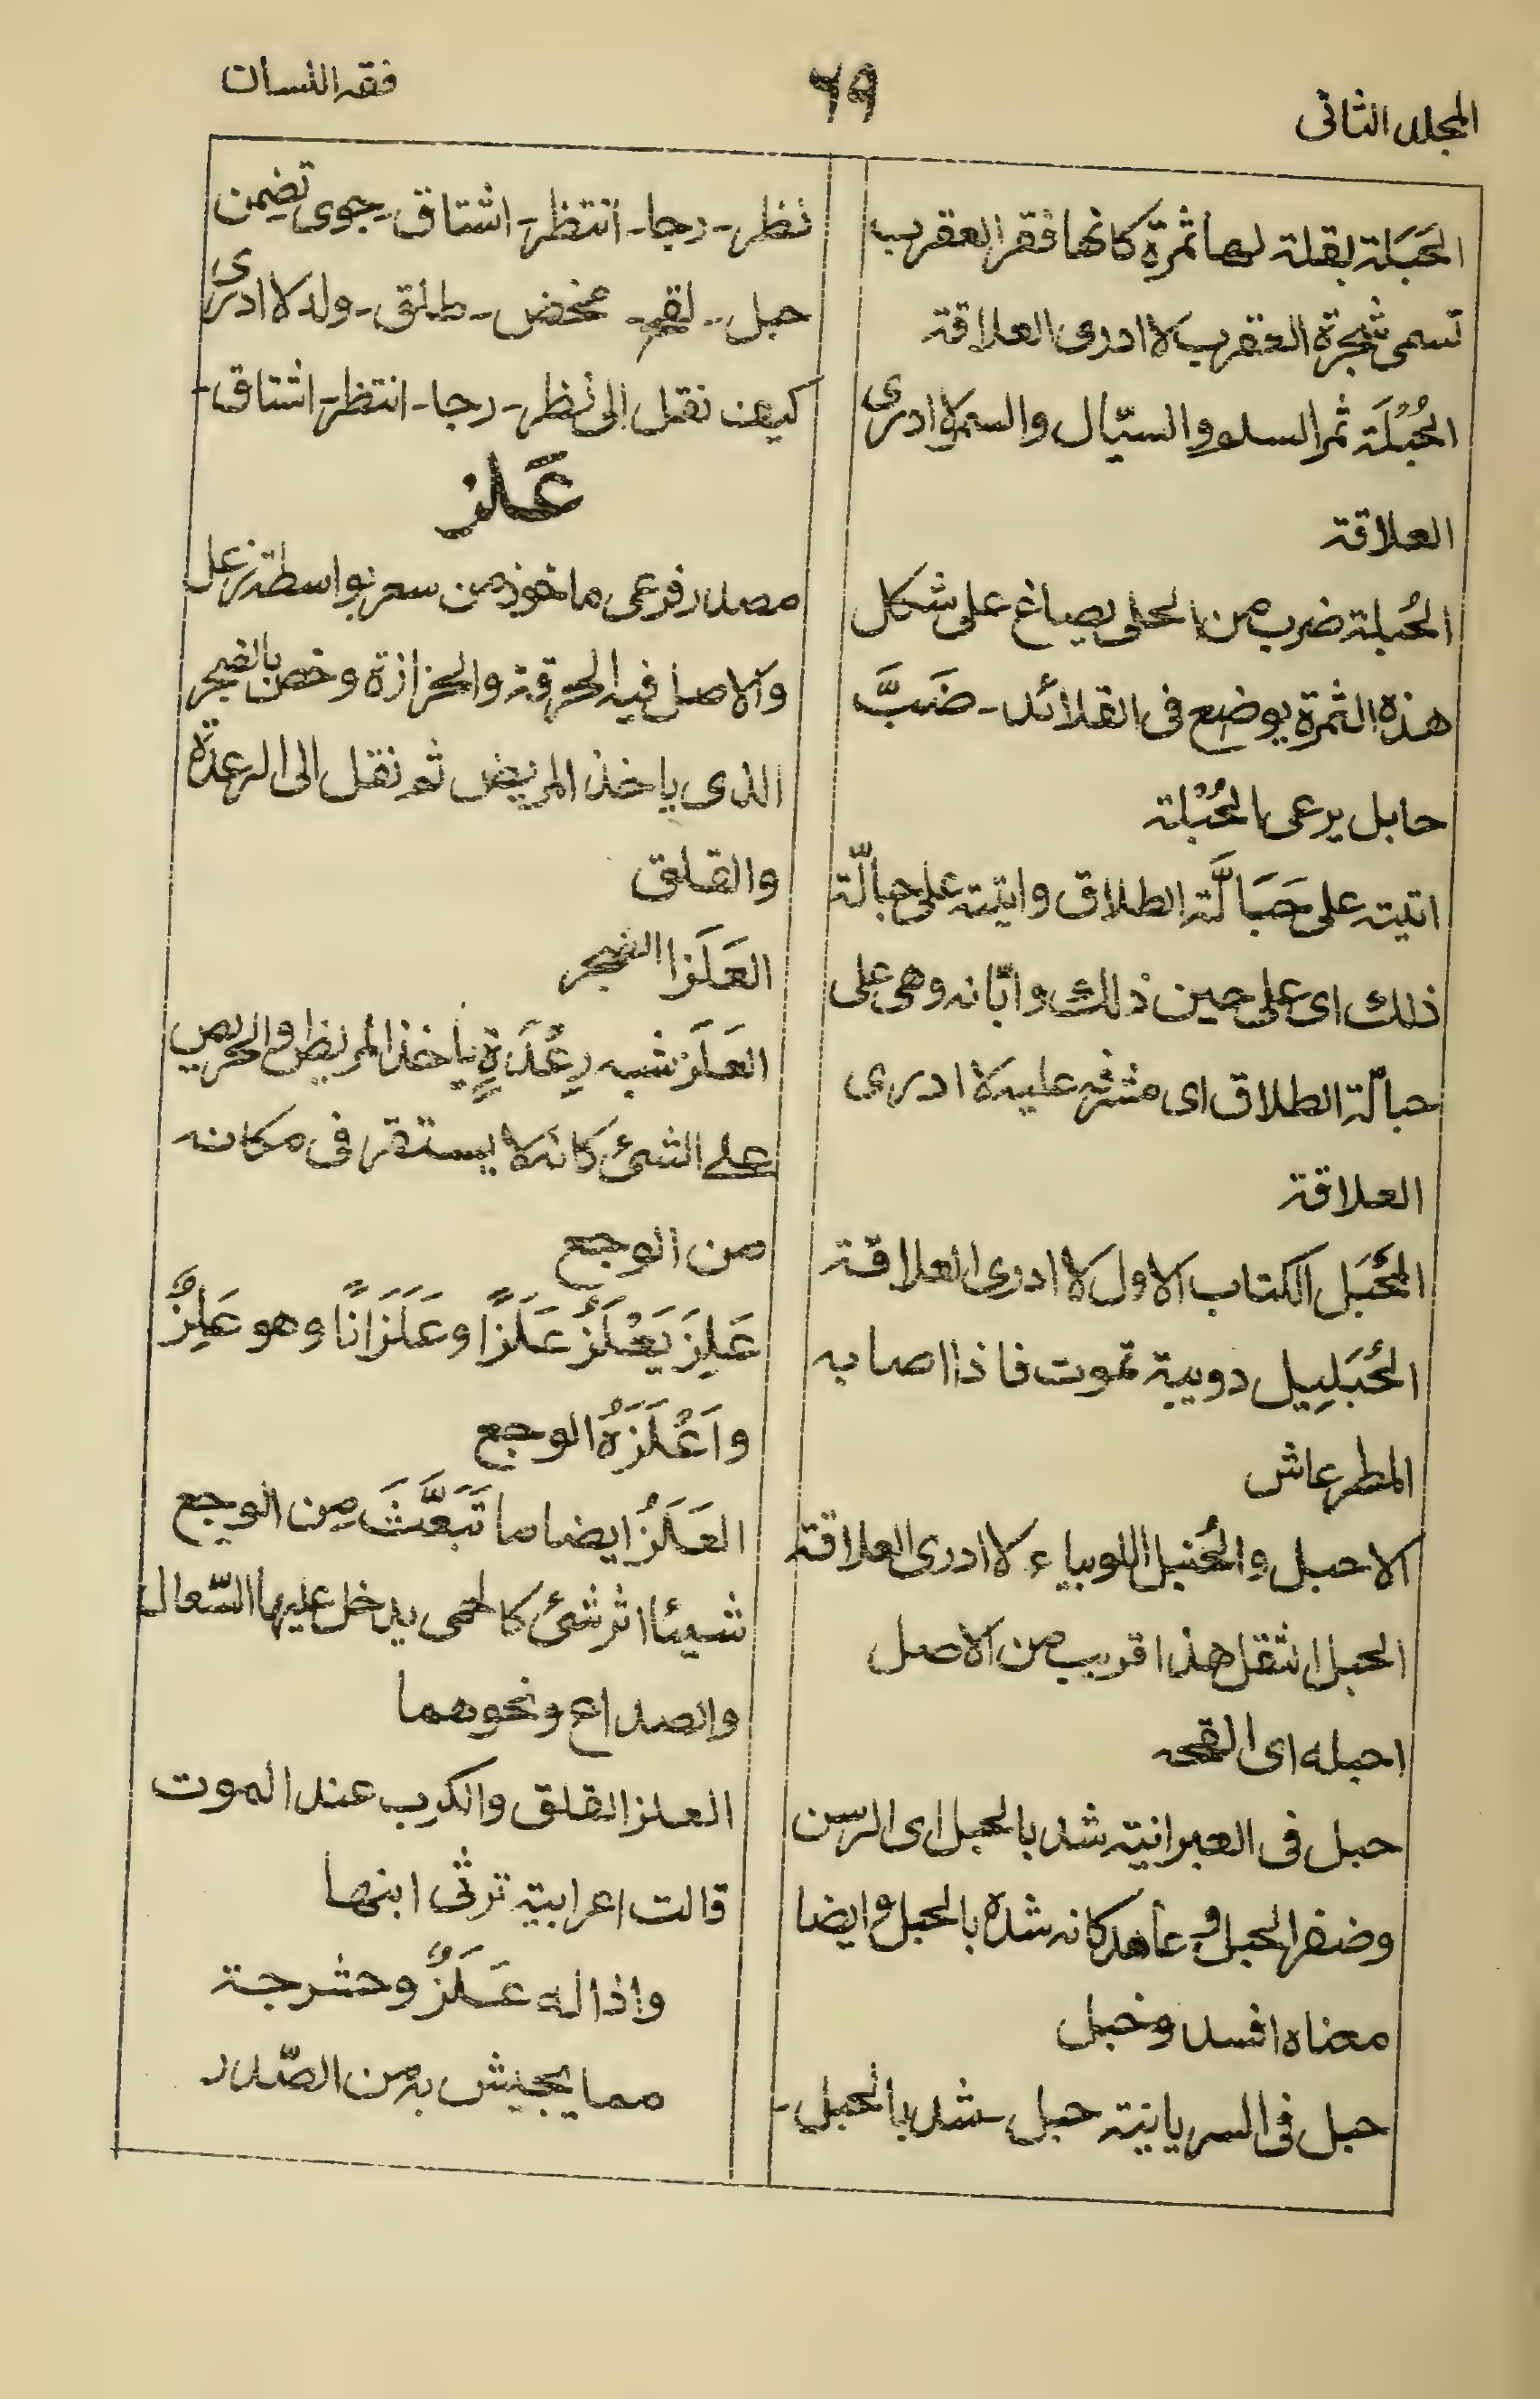 المجلد الثانى
٦٩
فقه اللسان
الحَبَلة بقلة لها ثمرة كانها فقر العقرب
تسمى شجرة العقرب لا ادرى العلاقة
الحُبْلَة ثمر السلم والسيّال والسمر لا ادرى
العلاقة
الحُبلة ضرب من الحلى يصاغ على شكل
هذه الثمرة يوضع فى القلائد - ضَبَّ
حابل يرعى الحُبْلة
اتيته على حَبَالَّة انطلاق واتيته على حبالّة
ذلك اى على حين ذلك وابّانه وهى على
حبالّة الطلاق اى مشرفه عليه لا ادرى
العلاقة
المُحْبَل الكتاب الاول لا ادرى العلاقة
الحُبَلِيل دويبة تموت فاذا اصابه
المطر عاش
الاحبل والحُنبل اللوبياء لا ادرى العلاقة
الحبل الثقل هذا قريب من الاصل
احبله اى القحه
حبل فى العبرانية شد بالحبل اى الرسن
وضفر الحبل و عاهد كانه شده بالحبل و ايضا
معناه افسد وخبل
حبل فى السريانية حبل - شد بالحبل -
نظر - رجا - انتظر - اشتاق - جوى تضمن
حبل - لقح - مخض - طلق - ولد لا ادرى
كيف نقل الى نظر - رجا - انتظر - اشتاق -
عَلز
مصدر فرعى ماخوذ من سعر بواسطة زعل
والاصل فيه الحرقة والحزازة وخص بالضجر
الذى ياخذ المريض ثم نقل الى الرعدة
والقلق
العَلَز الضجر
العَلَز شبه رِعْدَةٍ ياخذ المريض والحريص
على الشئ كانه لا يستقر فى مكانه
من الوجع
عَلِزَ يَعْلَزُ عَلَزًا وعَلَزَانًا وهو عَلِزٌ
واَعْلَزَهُ الوجع
العَلَزُ ايضا ما تَبَعَّثَ مِن الوجع
شيئا اثر شئ كالحمى يدخل عليها السّعال
والصداع ونحوهما
العلز القلق والكرب عند الموت
قالت اعرابية ترثى ابنها
واذا له عَلَزٌ وحشرجة
مما يجيش به من الصّدر